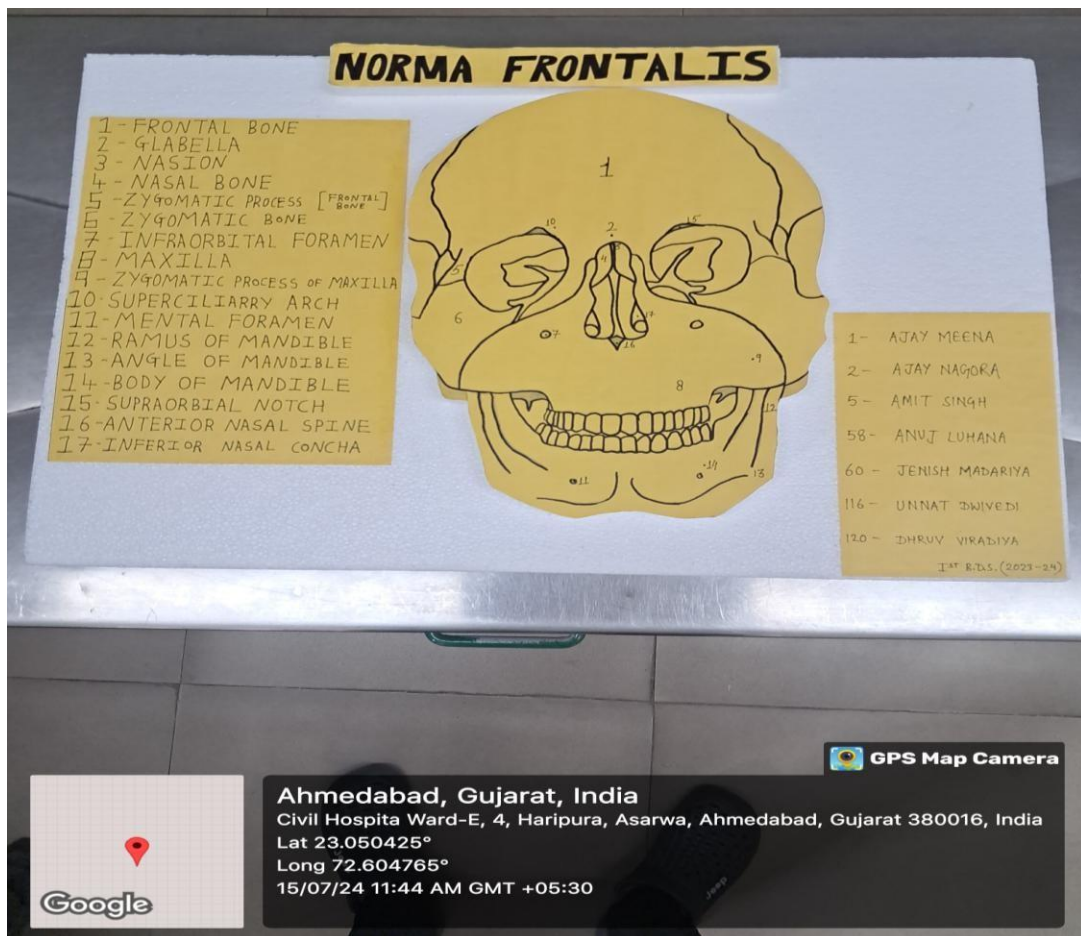 NORMA FRONTALIS
1-FRONTAL BONE
2-GLABELLA
3-NASION
4-NASAL BONE
5-ZYGOMATIC PROCESS [FRONTAL BONE]
6-ZYGOMATIC BONE
7-INFRAORBITAL FORAMEN
8-MAXILLA
9-ZYGOMATIC PROCESS OF MAXILLA
10-SUPERCILIARRY ARCH
11-MENTAL FORAMEN
12-RAMUS OF MANDIBLE
13-ANGLE OF MANDIBLE
14-BODY OF MANDIBLE
15-SUPRAORBIAL NOTCH
16-ANTERIOR NASAL SPINE
17-INFERIOR NASAL CONCHA
1
10
2
15
3
4
5
6
7
17
16
9
8
12
14
13
11
1- AJAY MEENA
2- AJAY NAGORA
5- AMIT SINGH
58- ANUJ LUHANA
60- JENISH MADARIYA
116- UNNAT DWIVEDI
120- DHRUV VIRADIYA
IST B.D.S. (2023-24)
GPS Map Camera
Ahmedabad, Gujarat, India
Civil Hospita Ward-E, 4, Haripura, Asarwa, Ahmedabad, Gujarat 380016, India
Lat 23.050425°
Long 72.604765°
15/07/24 11:44 AM GMT +05:30
Google
Jeep